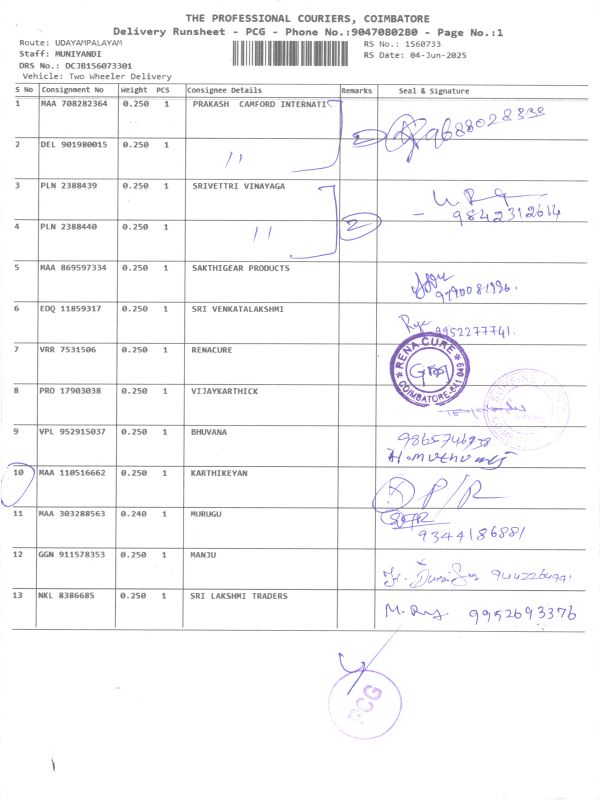 THE PROFESSIONAL COURIERS, COIMBATORE
Delivery Runsheet - PCG - Phone No.:9047080280 - Page No.:1
Route: UDAYAMPALAYAM
Staff: MUNIYANDI
DRS No.: DCJB156073301
Vehicle: Two Wheeler Delivery
RS No.: 1560733
RS Date: 04-Jun-2025
S No Consignment No Weight PCS Consignee Details Remarks Seal & Signature
1 MAA 708282364 0.250 1 PRAKASH CAMFORD INTERNATI
2 DEL 901980015 0.250 1 11 2
3 PLN 2388439 0.250 1 SRIVETTRI VINAYAGA 9842312614
4 PLN 2388440 0.250 1 11 2
5 MAA 869597334 0.250 1 SAKTHIGEAR PRODUCTS
6 EDQ 11859317 0.250 1 SRI VENKATALAKSHMI 9952277741.
7 VRR 7531506 0.250 1 RENACURE RENACURE COIMBATORE-641 049
8 PRO 17903038 0.250 1 VIJAYKARTHICK
9 VPL 952915037 0.250 1 BHUVANA
10 MAA 110516662 0.250 1 KARTHIKEYAN P/R
11 MAA 303288563 0.240 1 MURUGU 9344186881
12 GGN 911578353 0.250 1 MANJU
13 NKL 8386685 0.250 1 SRI LAKSHMI TRADERS 9952693376
PCG